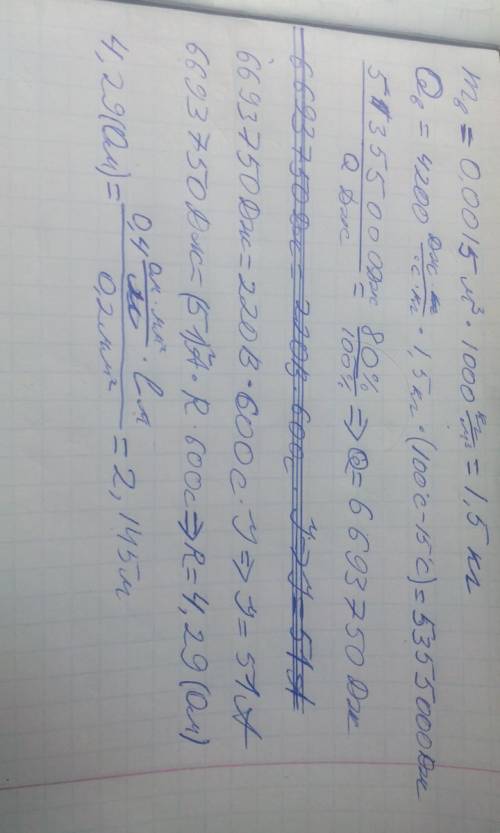 mв = 0,0015 м³ · 1000 кг/м³ = 1,5 кг
Qв = 4200 Дж/°C·кг · 1,5 кг · (100°C-15°C) = 5355000 Дж
5355000 Дж / Q Дж = 80% / 100% => Q = 6693750 Дж
6693750 Дж = 220В · 600с · У => У = 51 А
6693750 Дж = 220В · 600с · У => У = 51 А
6693750 Дж = (51)²А · R · 600с => R = 4,29 (Ом)
4,29 (Ом) = 0,4 Ом·мм²/м · l м / 0,2 мм² = 2,145 м